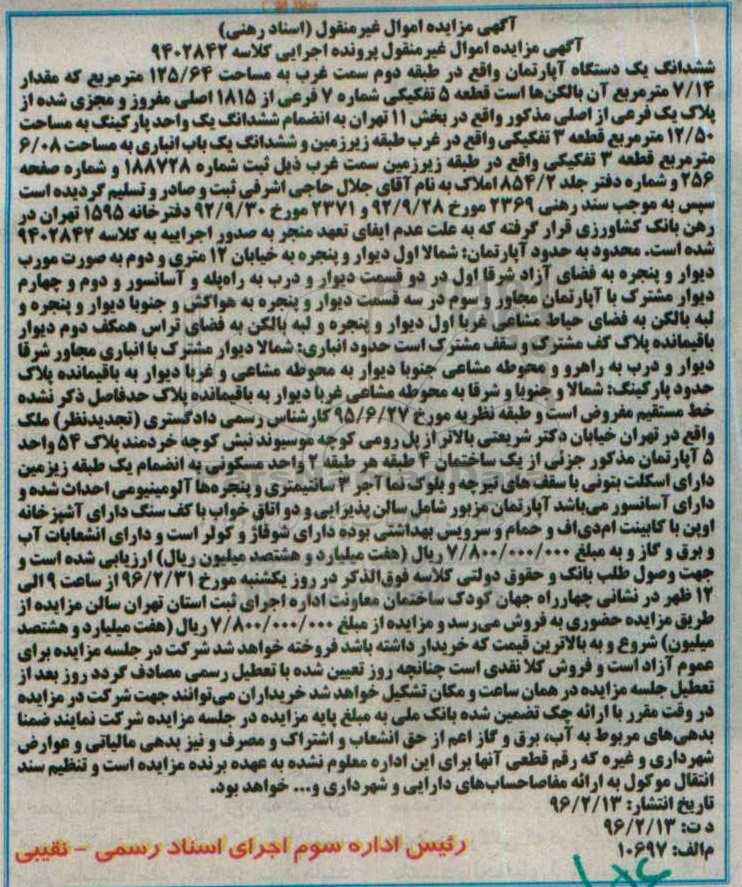 آگهی مزایده اموال غیرمنقول (اسناد رهنی)
آگهی مزایده اموال غیرمنقول پرونده اجرایی کلاسه ۹۴۰۲۸۴۲
ششدانگ یک دستگاه آپارتمان واقع در طبقه دوم سمت غرب به مساحت ۱۲۵/۶۴ مترمربع که مقدار
۷/۱۴ مترمربع آن بالکن‌ها است قطعه ۵ تفکیکی شماره ۷ فرعی از ۱۸۱۵ اصلی مفروز و مجزی شده از
پلاک یک فرعی از اصلی مذکور واقع در بخش ۱۱ تهران به انضمام ششدانگ یک واحد پارکینگ به مساحت
۱۲/۵۰ مترمربع قطعه ۳ تفکیکی واقع در غرب طبقه زیرزمین و ششدانگ یک باب انباری به مساحت ۶/۰۸
مترمربع قطعه ۳ تفکیکی واقع در طبقه زیرزمین سمت غرب ذیل ثبت شماره ۱۸۸۷۲۸ و شماره صفحه
۲۵۶ و شماره دفتر جلد ۸۵۴/۲ املاک به نام آقای جلال حاجی اشرفی ثبت و صادر و تسلیم گردیده است
سپس به موجب سند رهنی ۲۳۶۹ مورخ ۹۲/۹/۲۸ و ۲۳۷۱ مورخ ۹۲/۹/۳۰ دفترخانه ۱۵۹۵ تهران در
رهن بانک کشاورزی قرار گرفته که به علت عدم ایفای تعهد منجر به صدور اجراییه به کلاسه ۹۴۰۲۸۴۲
شده است. محدود به حدود آپارتمان: شمالا اول دیوار و پنجره به خیابان ۱۲ متری و دوم به صورت مورب
دیوار و پنجره به فضای آزاد شرقا اول در دو قسمت دیوار و درب به راه‌پله و آسانسور و دوم و چهارم
دیوار مشترک با آپارتمان مجاور و سوم در سه قسمت دیوار و پنجره به هواکش و جنوبا دیوار و پنجره و
لبه بالکن به فضای حیاط مشاعی غربا اول دیوار و پنجره و لبه بالکن به فضای تراس همکف دوم دیوار
باقیمانده پلاک کف مشترک و سقف مشترک است حدود انباری: شمالا دیوار مشترک با انباری مجاور شرقا
دیوار و درب به راهرو و محوطه مشاعی جنوبا دیوار به محوطه مشاعی و غربا دیوار به باقیمانده پلاک
حدود پارکینگ: شمالا و جنوبا و شرقا به محوطه مشاعی غربا دیوار به باقیمانده پلاک حدفاصل ذکر نشده
خط مستقیم مفروض است و طبقه نظریه مورخ ۹۵/۶/۲۷ کارشناس رسمی دادگستری (تجدیدنظر) ملک
واقع در تهران خیابان دکتر شریعتی بالاتر از پل رومی کوچه موسیوند نبش کوچه خردمند پلاک ۵۴ واحد
۵ آپارتمان مذکور جزئی از یک ساختمان ۴ طبقه هر طبقه ۲ واحد مسکونی به انضمام یک طبقه زیزمین
دارای اسکلت بتونی با سقف های تیرچه و بلوک نما آجر ۳ سانتیمتری و پنجره‌ها آلومینیومی احداث شده و
دارای آسانسور می‌باشد آپارتمان مزبور شامل سالن پذیرایی و دو اتاق خواب با کف سنگ دارای آشپزخانه
اوپن با کابینت ام‌دی‌اف و حمام و سرویس بهداشتی بوده دارای شوفاژ و کولر است و دارای انشعابات آب
و برق و گاز و به مبلغ ۷/۸۰۰/۰۰۰/۰۰۰ ریال (هفت میلیارد و هشتصد میلیون ریال) ارزیابی شده است و
جهت وصول طلب بانک و حقوق دولتی کلاسه فوق‌الذکر در روز یکشنبه مورخ ۹۶/۲/۳۱ از ساعت ۹ الی
۱۲ ظهر در نشانی چهارراه جهان کودک ساختمان معاونت اداره اجرای ثبت استان تهران سالن مزایده از
طریق مزایده حضوری به فروش می‌رسد و مزایده از مبلغ ۷/۸۰۰/۰۰۰/۰۰۰ ریال (هفت میلیارد و هشتصد
میلیون) شروع و به بالاترین قیمت که خریدار داشته باشد فروخته خواهد شد شرکت در جلسه مزایده برای
عموم آزاد است و فروش کلا نقدی است چنانچه روز تعیین شده با تعطیل رسمی مصادف گردد روز بعد از
تعطیل جلسه مزایده در همان ساعت و مکان تشکیل خواهد شد خریداران می‌توانند جهت شرکت در مزایده
در وقت مقرر با ارائه چک تضمین شده بانک ملی به مبلغ پایه مزایده در جلسه مزایده شرکت نمایند ضمنا
بدهی‌های مربوط به آب، برق و گاز اعم از حق انشعاب و اشتراک و مصرف و نیز بدهی مالیاتی و عوارض
شهرداری و غیره که رقم قطعی آنها برای این اداره معلوم نشده به عهده برنده مزایده است و تنظیم سند
انتقال موکول به ارائه مفاصاحساب‌های دارایی و شهرداری و... خواهد بود.
تاریخ انتشار: ۹۶/۲/۱۳
د ت: ۹۶/۲/۱۳
م‌الف: ۱۰۶۹۷
رئیس اداره سوم اجرای اسناد رسمی - نقیبی